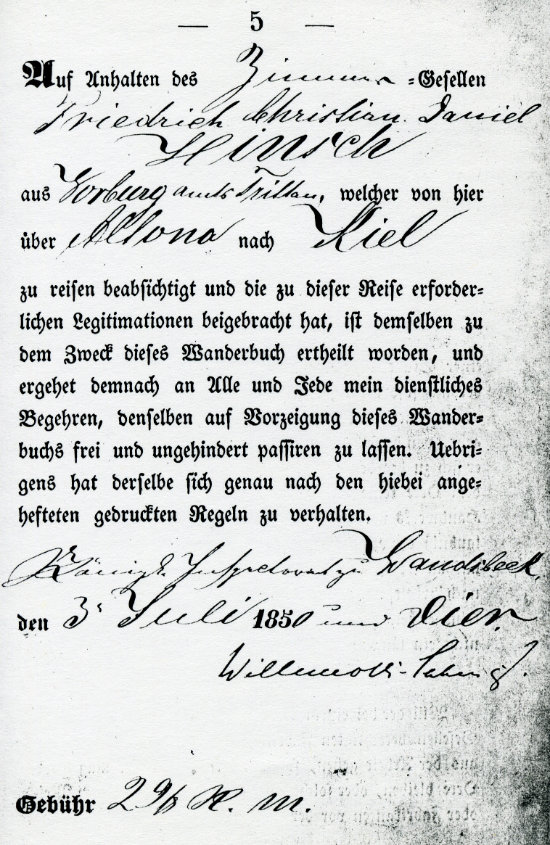 — 5 —
Auf Anhalten des Zimmer-Gesellen
Friedrich Christian Daniel
Hinsch
aus Vorburg amts Trittau, welcher von hier
über Altona nach Kiel
zu reisen beabsichtigt und die zu dieser Reise erforder-
lichen Legitimationen beigebracht hat, ist demselben zu
dem Zweck dieses Wanderbuch ertheilt worden, und
ergehet demnach an Alle und Jede mein dienstliches
Begehren, denselben auf Vorzeigung dieses Wander-
buchs frei und ungehindert passiren zu lassen. Uebri-
gens hat derselbe sich genau nach den hiebei ange-
hefteten gedruckten Regeln zu verhalten.
Königl. Inspectorat zu Wandsbeck,
den 3t Juli 1850 und vier.
Gebühr R. m.